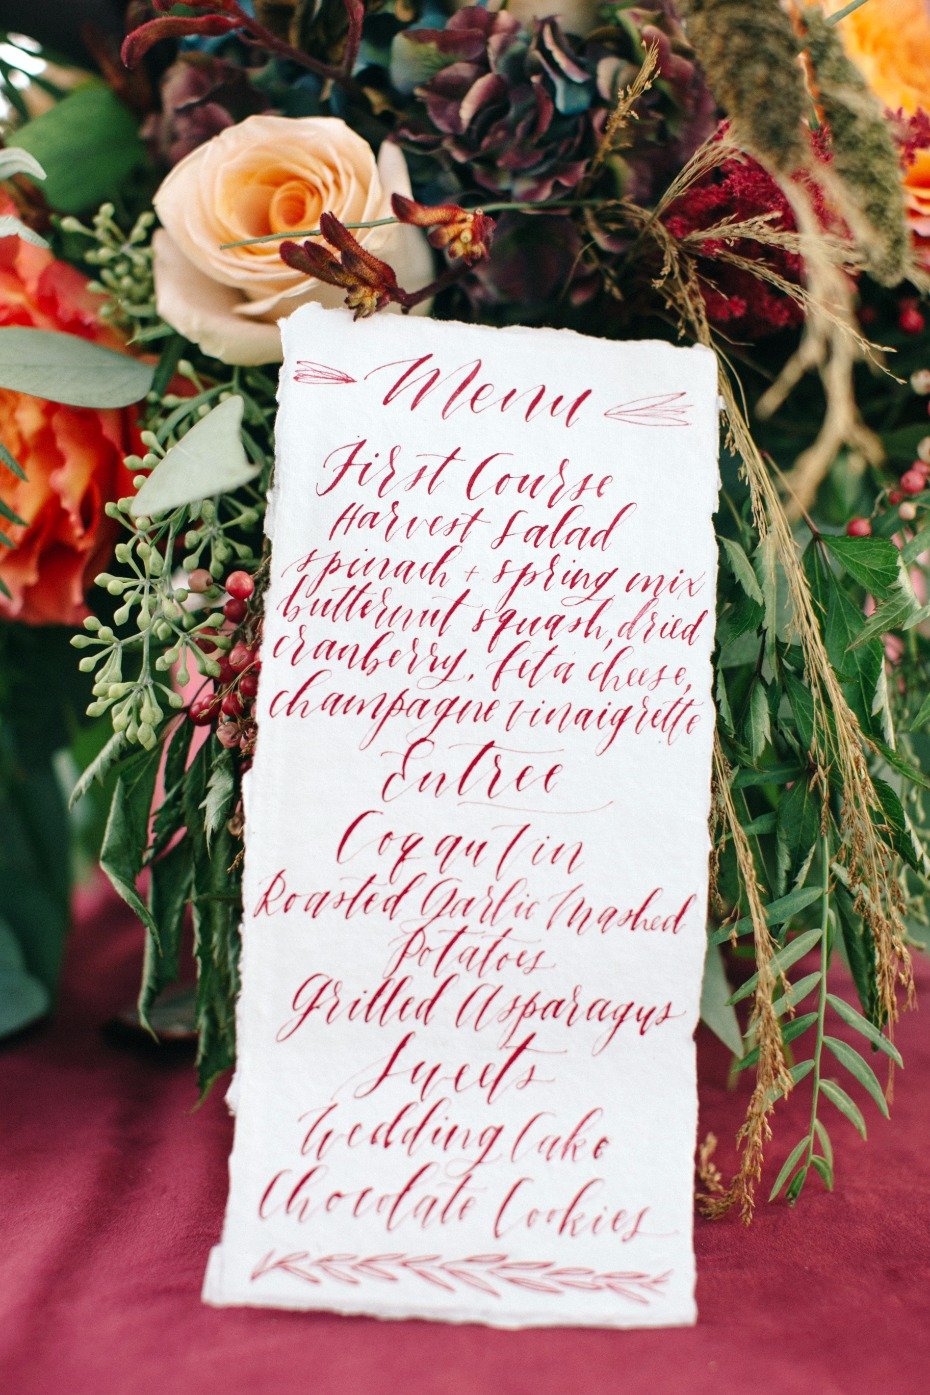 Menu
First Course
Harvest Salad
spinach + spring mix
butternut squash, dried
cranberry, feta cheese,
champagne vinaigrette
Entree
Coq au Vin
Roasted Garlic Mashed
Potatoes
Grilled Asparagus
Sweets
Wedding Cake
Chocolate Cookies